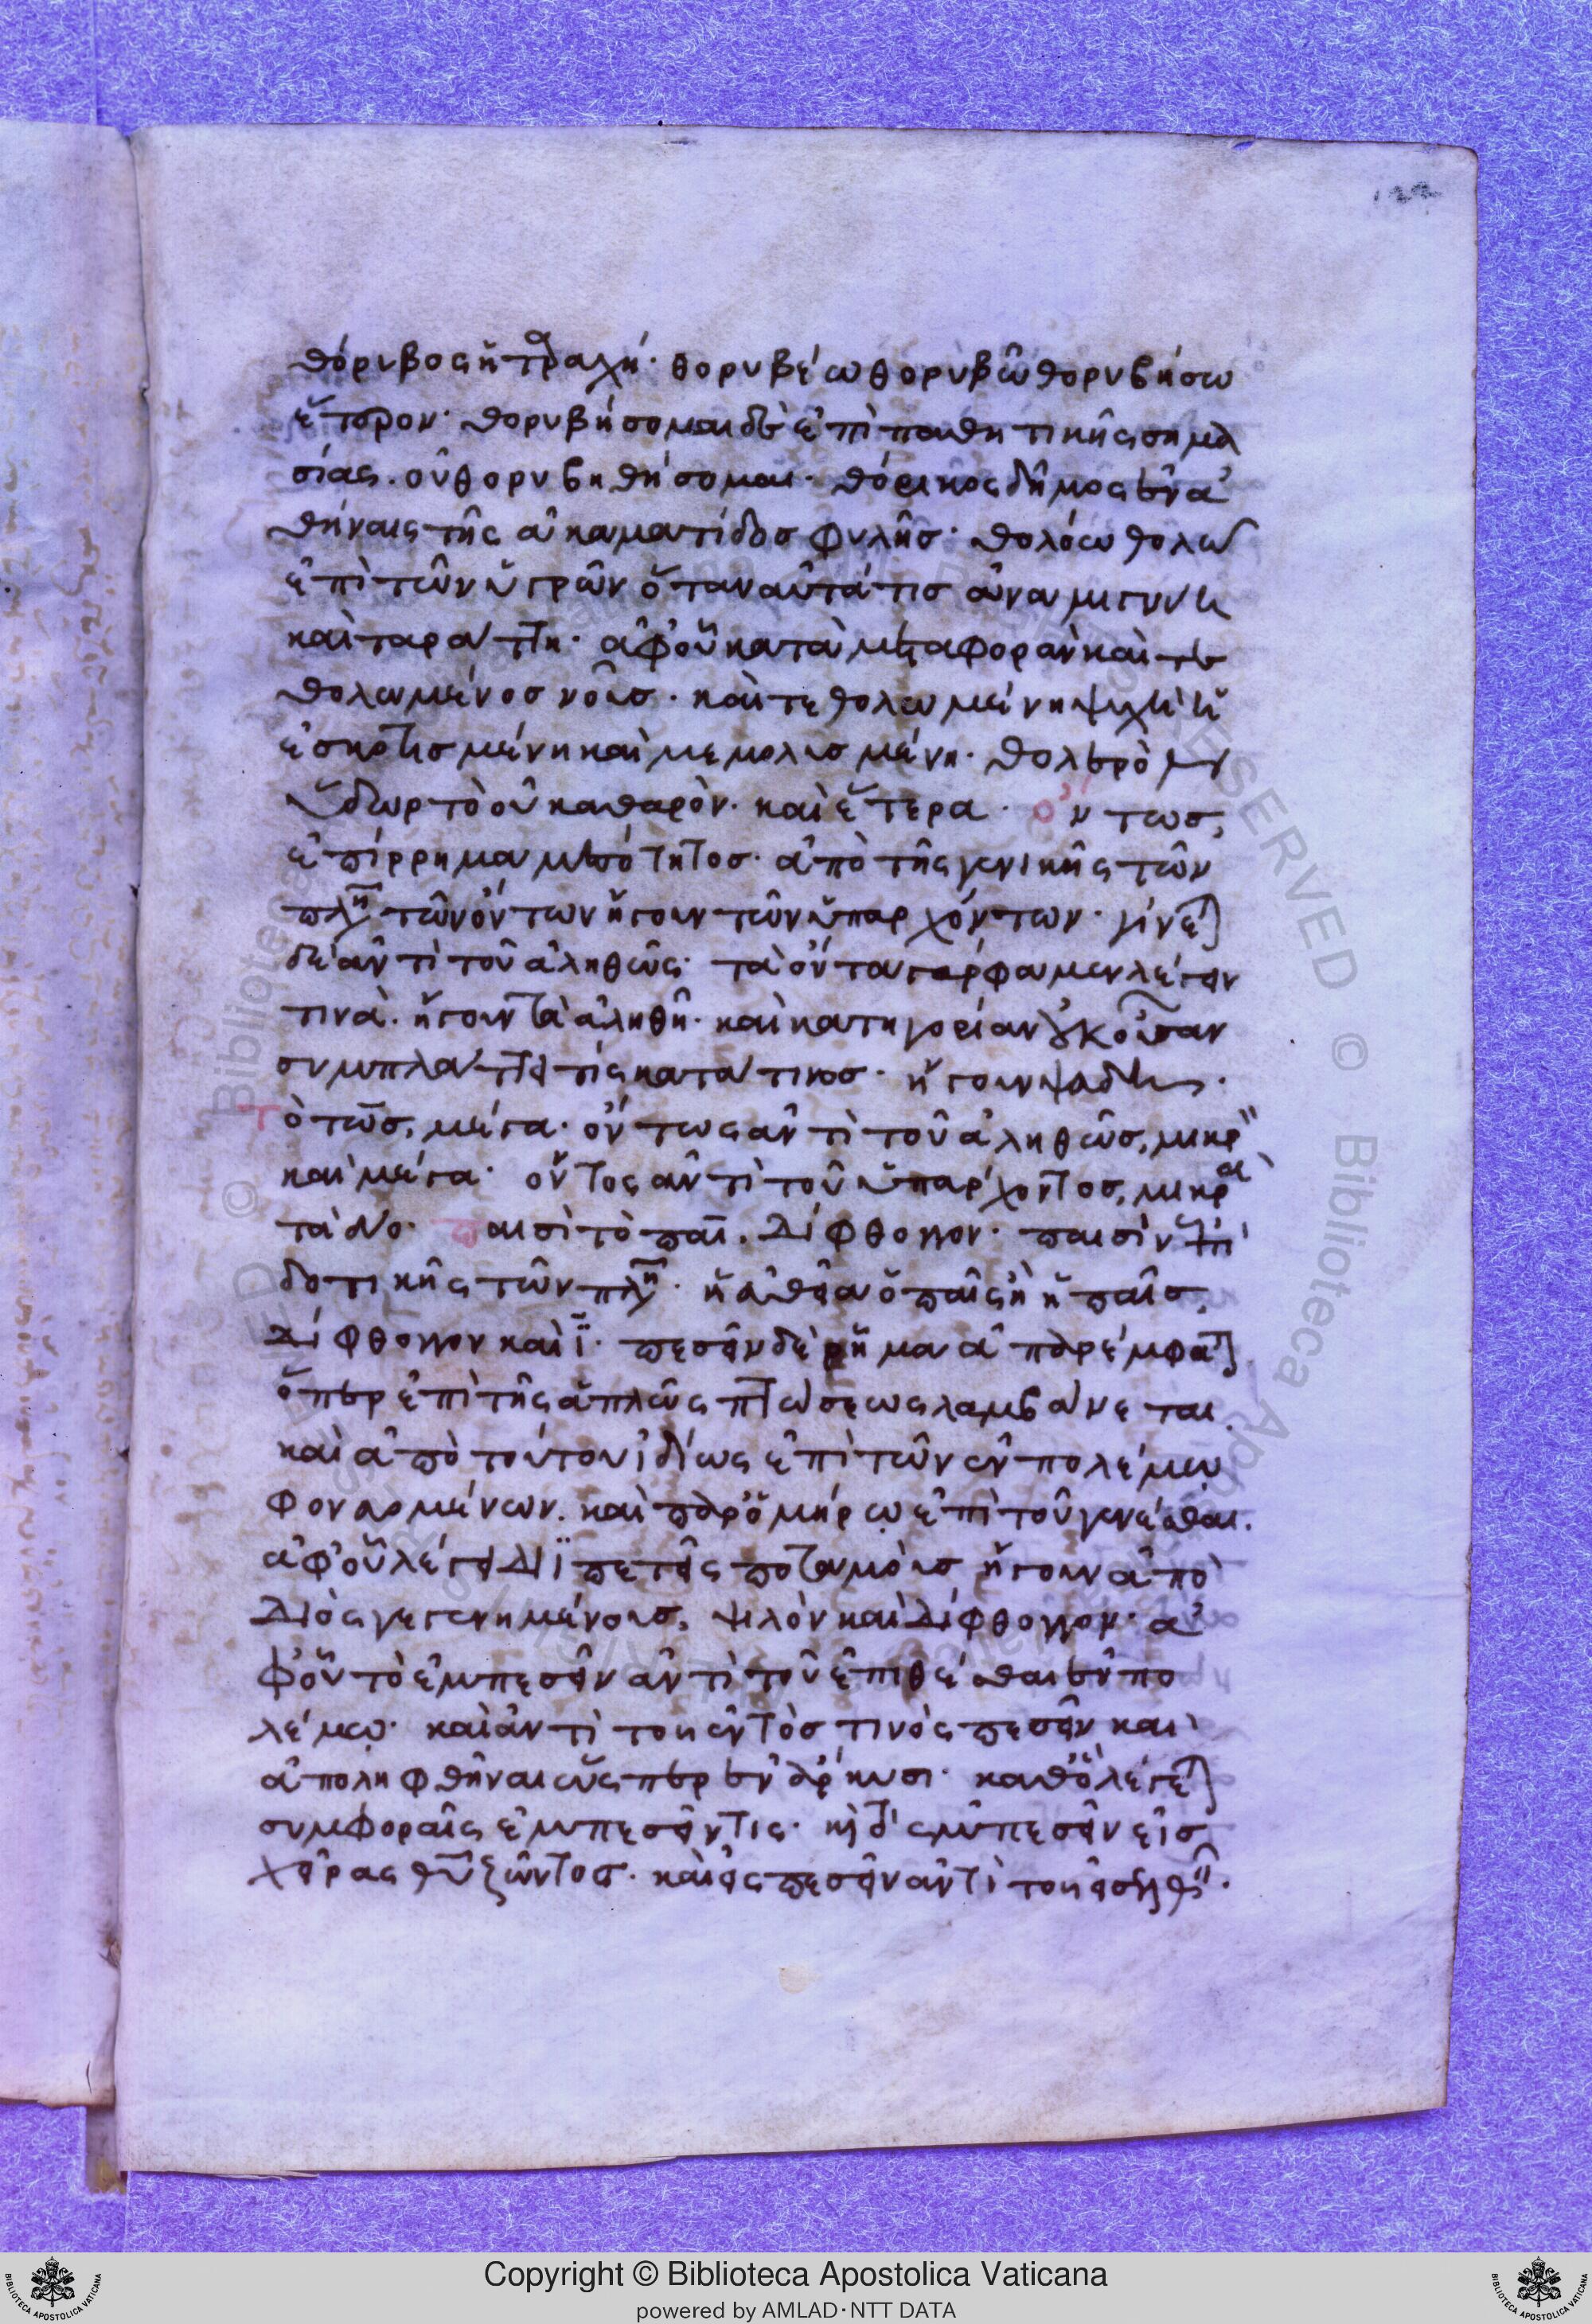 122
θόρυβος ἡ τραχή· θορυβέω θορυβῶ θορυβήσω
ἕτερον· θορυβήσομαι δὲ ἐπὶ παθητικῆς σημα
σίας. οὐ θορυβηθήσομαι· θόρικος δῆμος ἐν ἀ
θήναις τῆς ἀκαματίδος φυλῆς· θολόω θολῶ
ἐπὶ τῶν ὑγρῶν ὅταν αὐτά τις ἀναμιγνύει
καὶ ταράττη· ἀφ' οὗ κατὰ μεταφορὰν καὶ τε
θολωμένος νοῦς· καὶ τεθολωμένη ψυχὴ ἡ
ἐσκοτισμένη καὶ μεμολυσμένη· θολερὸν
ὕδωρ τὸ οὐ καθαρόν· καὶ ἕτερα· ὄντως,
ἐπίρρημα μεσότητος· ἀπὸ τῆς γενικῆς τῶν
πλη τῶν ὄντων ἤγουν τῶν ὑπαρχόντων· γίνε
δὲ ἀντὶ τοῦ ἀληθῶς· τὰ ὄντα γάρ φαμεν λέγειν
τινὰ· ἤγουν τὰ ἀληθῆ· καὶ κατηγορίαν οὐκ οὖσαν
συμπλάττει τίς κατά τινος· ἤγουν ψευδῆ·
τὸ τως, μέγα· ὄντως ἀντὶ τοῦ ἀληθῶς, μικρ
καὶ μέγα· ὄντος ἀντὶ τοῦ ὑπάρχοντος, μικρὰ
τὰ δύο· παισὶ τὸ παι, δίφθογγον· παισὶν ἐπὶ
δοτικῆς τῶν πλη· ἡ εὐθεῖα ὁ παῖς ἢ ἡ παῖς,
δίφθογγον καὶ ϊ· πεσεῖν δὲ ῥῆμα ἀπαρέμφα
ὅπερ ἐπὶ τῆς ἁπλῶς πτώσεως λαμβάνεται.
καὶ ἀπὸ τούτου ἰδίως ἐπὶ τῶν ἐν πολέμω
φονευομένων. καὶ παρ' ὁμήρω ἐπὶ τοῦ γενέσθαι.
ἀφ' οὗ λέγει Διϊπετεῖς ποταμοὺς ἤγουν ἀπὸ
Διὸς γεγενημένους, ψιλὸν καὶ δίφθογγον· ἀ
φ' οὗ τὸ ἐμπεσεῖν ἀντὶ τοῦ ἐπιθέσθαι ἐν πο
λέμω· καὶ ἀντὶ τοῦ ἐντός τινὸς πεσεῖν καὶ
ἀποληφθῆναι ὥσπερ ἐν ἄρκυσι· καθ' ὃ λέγε
συμφοραῖς ἐμπεσόντες· καὶ τὸ ἐμπεσεῖν εἰς
χεῖρας θῦ ζῶντος· καὶ εἰσπεσεῖν ἀντὶ τοῦ εἰσελθεῖν·
Copyright © Biblioteca Apostolica Vaticana
powered by AMLAD·NTT DATA